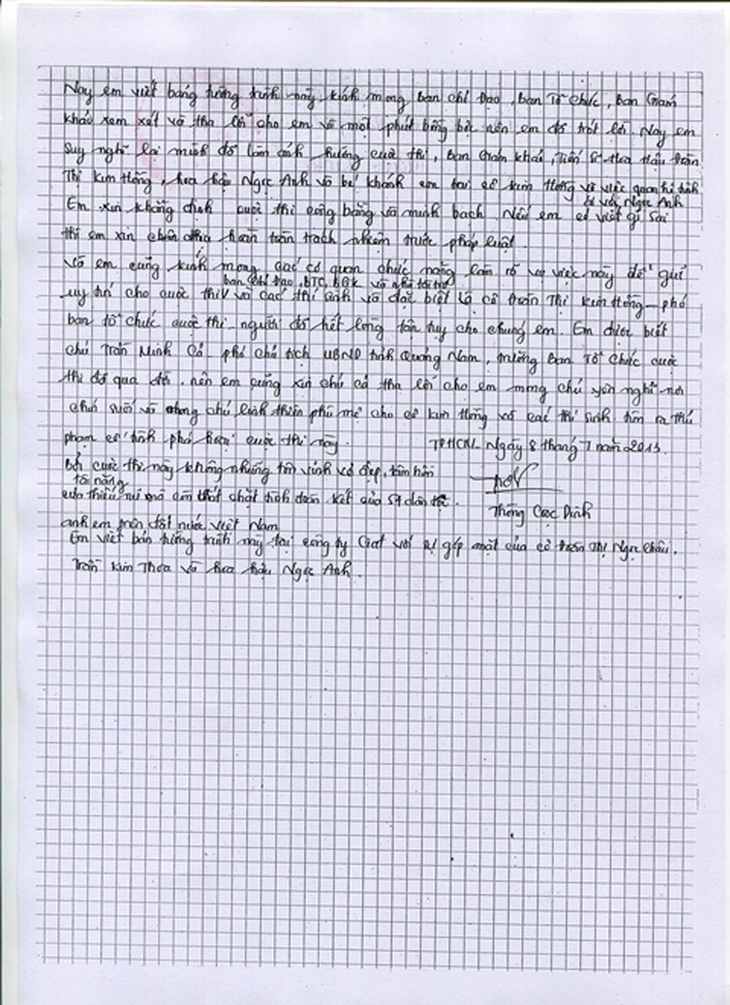 Nay em viết bảng tường trình này kính mong ban chỉ đạo, ban Tổ chức, ban Giám
khảo xem xét và tha lỗi cho em vì một phút bồng bột nên em đã trót lỡ. Nay em
Suy nghĩ lại mình đã làm ảnh hưởng cuộc thi, ban Giám khảo, Tiến sĩ Hoa Hậu Trần
Thị Kim Hồng, hoa hậu Ngọc Anh và bé Khánh con trai cô Kim Hồng và việc quan hệ tình
ái với Ngọc Anh
Em xin khẳng định cuộc thi công bằng và minh bạch. Nếu em có viết gì sai
thì em xin chịu hoàn toàn trách nhiệm trước pháp luật.
Và em cũng kính mong các cơ quan chức năng làm rõ vụ việc này để giữ
ban chỉ đạo, BTC, BGK và nhà tài trợ
uy tín cho cuộc thi và các thí sinh và đặc biệt là cô Trần Thị Kim Hồng - phó
ban tổ chức cuộc thi - người đã hết lòng tận tụy cho chúng em. Em được biết
chú Trần Minh Cả phó chủ tịch UBND tỉnh Quảng Nam, trưởng Ban Tổ Chức cuộc
thi đã qua đời, nên em cũng xin chú Cả tha lỗi cho em mong chú yên nghỉ nơi
chín suối và mong chú linh thiên phù mợ cho cô Kim Hồng và các thí sinh tìm ra thủ
phạm cố tình phá hoại cuộc thi này. TPHCM, Ngày 8 tháng 7 năm 2013
Bởi cuộc thi này không những tôn vinh vẻ đẹp, tâm hồn
tài năng
của thiếu nữ mà còn thắt chặt tình đoàn kết của 54 dân tộc
anh em trên đất nước Việt Nam Thông Cọc Dính
Em viết bản tường trình này tại công ty Ciat với sự góp mặt của cô Trần Thị Ngọc Châu.
Trần Kim Thoa và hoa hậu Ngọc Anh.